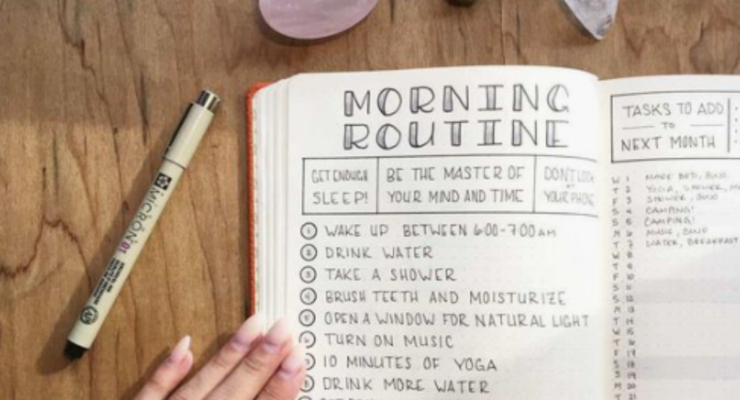 MORNING
ROUTINE
GET ENOUGH
SLEEP!
BE THE MASTER OF
YOUR MIND AND TIME
DON'T LOOK
YOUR PHONE
1 WAKE UP BETWEEN 6:00-7:00 AM
2 DRINK WATER
3 TAKE A SHOWER
4 BRUSH TEETH AND MOISTURIZE
5 OPEN A WINDOW FOR NATURAL LIGHT
6 TURN ON MUSIC
10 MINUTES OF YOGA
DRINK MORE WATER
TASKS TO ADD
TO
NEXT MONTH
W 1 MAKE BED,
T 2 YOGA, SHOWER,
F 3 SHOWER,
S 4 CAMPING!
S 5 CAMPING!
M 6 MUSIC,
T 7 WATER, BREAKFAST
W 8
T 9
F 10
S 11
S 12
M 13
T 14
W 15
T 16
F 17
S 18
S 19
M 20
T 21
MICRON 01